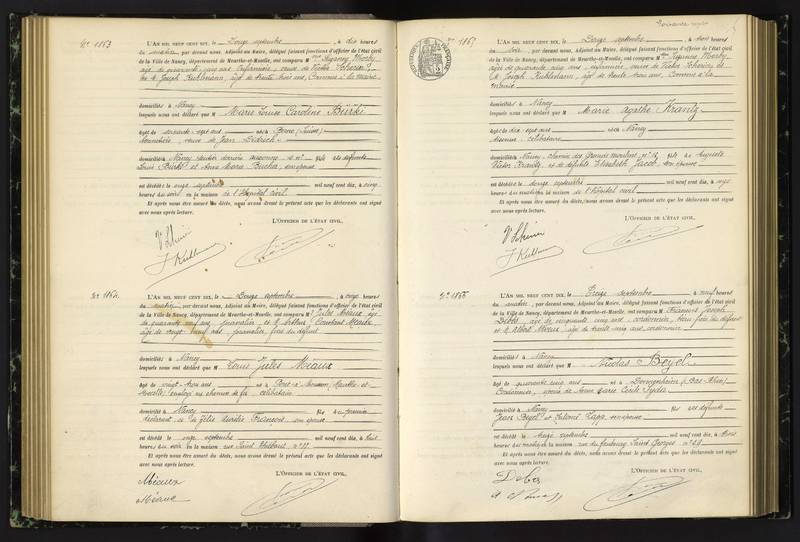 N° 1863
L'AN MIL NEUF CENT DIX, le Douze septembre, à dix heures
du matin, par devant nous, Adjoint au Maire, délégué faisant fonctions d'officier de l'état civil
de la Ville de Nancy, département de Meurthe-et-Moselle, ont comparu M
âgée de quarante cinq ans, infirmière, veuve de Victor Scherier
et M. Joseph Kuhlmann, âgé de trente trois ans, Commis à la Mairie
domiciliés à Nancy
lesquels nous ont déclaré que M Marie Louise Caroline Bürki
âgée de soixante sept ans née à Berne (Suisse)
veuve de Jean Diétrich
domiciliée à Nancy
Louis Bürki et Anna Maria Bucher, son épouse
est décédée le onze septembre mil neuf cent dix, à cinq
heures du soir en la maison de l'Hôpital civil
Et après nous être assuré du décès, nous avons dressé le présent acte que les déclarants ont signé
avec nous après lecture.
L'OFFICIER DE L'ÉTAT CIVIL,
J Kuhlmann
N° 1864
L'AN MIL NEUF CENT DIX, le Douze septembre, à onze heures
du matin, par devant nous, Adjoint au Maire, délégué faisant fonctions d'officier de l'état civil
de la Ville de Nancy, département de Meurthe-et-Moselle, ont comparu M Jules Méaux, âgé
de quarante ans, journalier, et M. Constant Méaux
âgé de vingt neuf ans, journalier, frère du défunt
domiciliés à Nancy
lesquels nous ont déclaré que M Louis Jules Méaux
âgé de vingt trois ans né à Pont à Mousson (Meurthe et
Moselle) employé au chemin de fer, célibataire
domicilié à Nancy fils du premier
déclarant et de François, son épouse
est décédé le onze septembre mil neuf cent dix, à huit
heures du soir en la maison rue Saint Thiébaut n°
Et après nous être assuré du décès, nous avons dressé le présent acte que les déclarants ont signé
avec nous après lecture.
L'OFFICIER DE L'ÉTAT CIVIL,
Méaux
Méaux
N° 1865
L'AN MIL NEUF CENT DIX, le Douze septembre, à trois heures
du soir, par devant nous, Adjoint au Maire, délégué faisant fonctions d'officier de l'état civil
de la Ville de Nancy, département de Meurthe-et-Moselle, ont comparu M
âgée de quarante cinq ans, infirmière, veuve de Victor Scherier et
M. Joseph Kuhlmann, âgé de trente trois ans, Commis à la
mairie
domiciliés à Nancy
lesquels nous ont déclaré que M Marie Agathe Krantz
âgée de dix sept ans née à Nancy
célibataire
domiciliée à Nancy, chemin des grands moulins n° fille de Auguste
Victor Krantz et de défunte Elisabeth Jacob, son épouse
est décédée le douze septembre mil neuf cent dix, à onze
heures du matin en la maison de l'Hôpital civil
Et après nous être assuré du décès, nous avons dressé le présent acte que les déclarants ont signé
avec nous après lecture.
L'OFFICIER DE L'ÉTAT CIVIL,
J Kuhlmann
N° 1866
L'AN MIL NEUF CENT DIX, le Treize septembre, à neuf heures
du matin, par devant nous, Adjoint au Maire, délégué faisant fonctions d'officier de l'état civil
de la Ville de Nancy, département de Meurthe-et-Moselle, ont comparu M François Joseph
Debès, âgé de cinquante cinq ans, cordonnier, beau frère du défunt
et M. Albert, âgé de trente cinq ans, cordonnier
domiciliés à Nancy
lesquels nous ont déclaré que M Nicolas Beyel
âgé de quarante cinq ans né à (Bas-Rhin)
Cordonnier, époux de Anne Marie Cécile
domicilié à Nancy fils des défunts
Jean Beyel et Salomé Zapp, son épouse
est décédé le treize septembre mil neuf cent dix, à trois
heures du matin en la maison rue du faubourg Saint Georges n°
Et après nous être assuré du décès, nous avons dressé le présent acte que les déclarants ont signé
avec nous après lecture.
L'OFFICIER DE L'ÉTAT CIVIL,
Debès